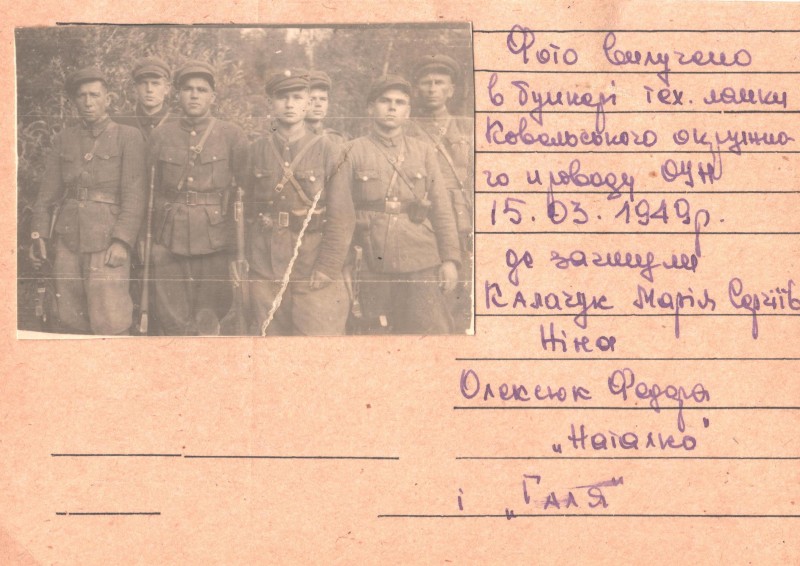 Фото вилучено
в бункері тех. ланки
Ковельського окружно-
го проводу ОУН
15.03.1949р.
де загинули
Калачук Марія Сергіїв
Ніна
Олексюк Федора
„Наталко"
і „Галя"